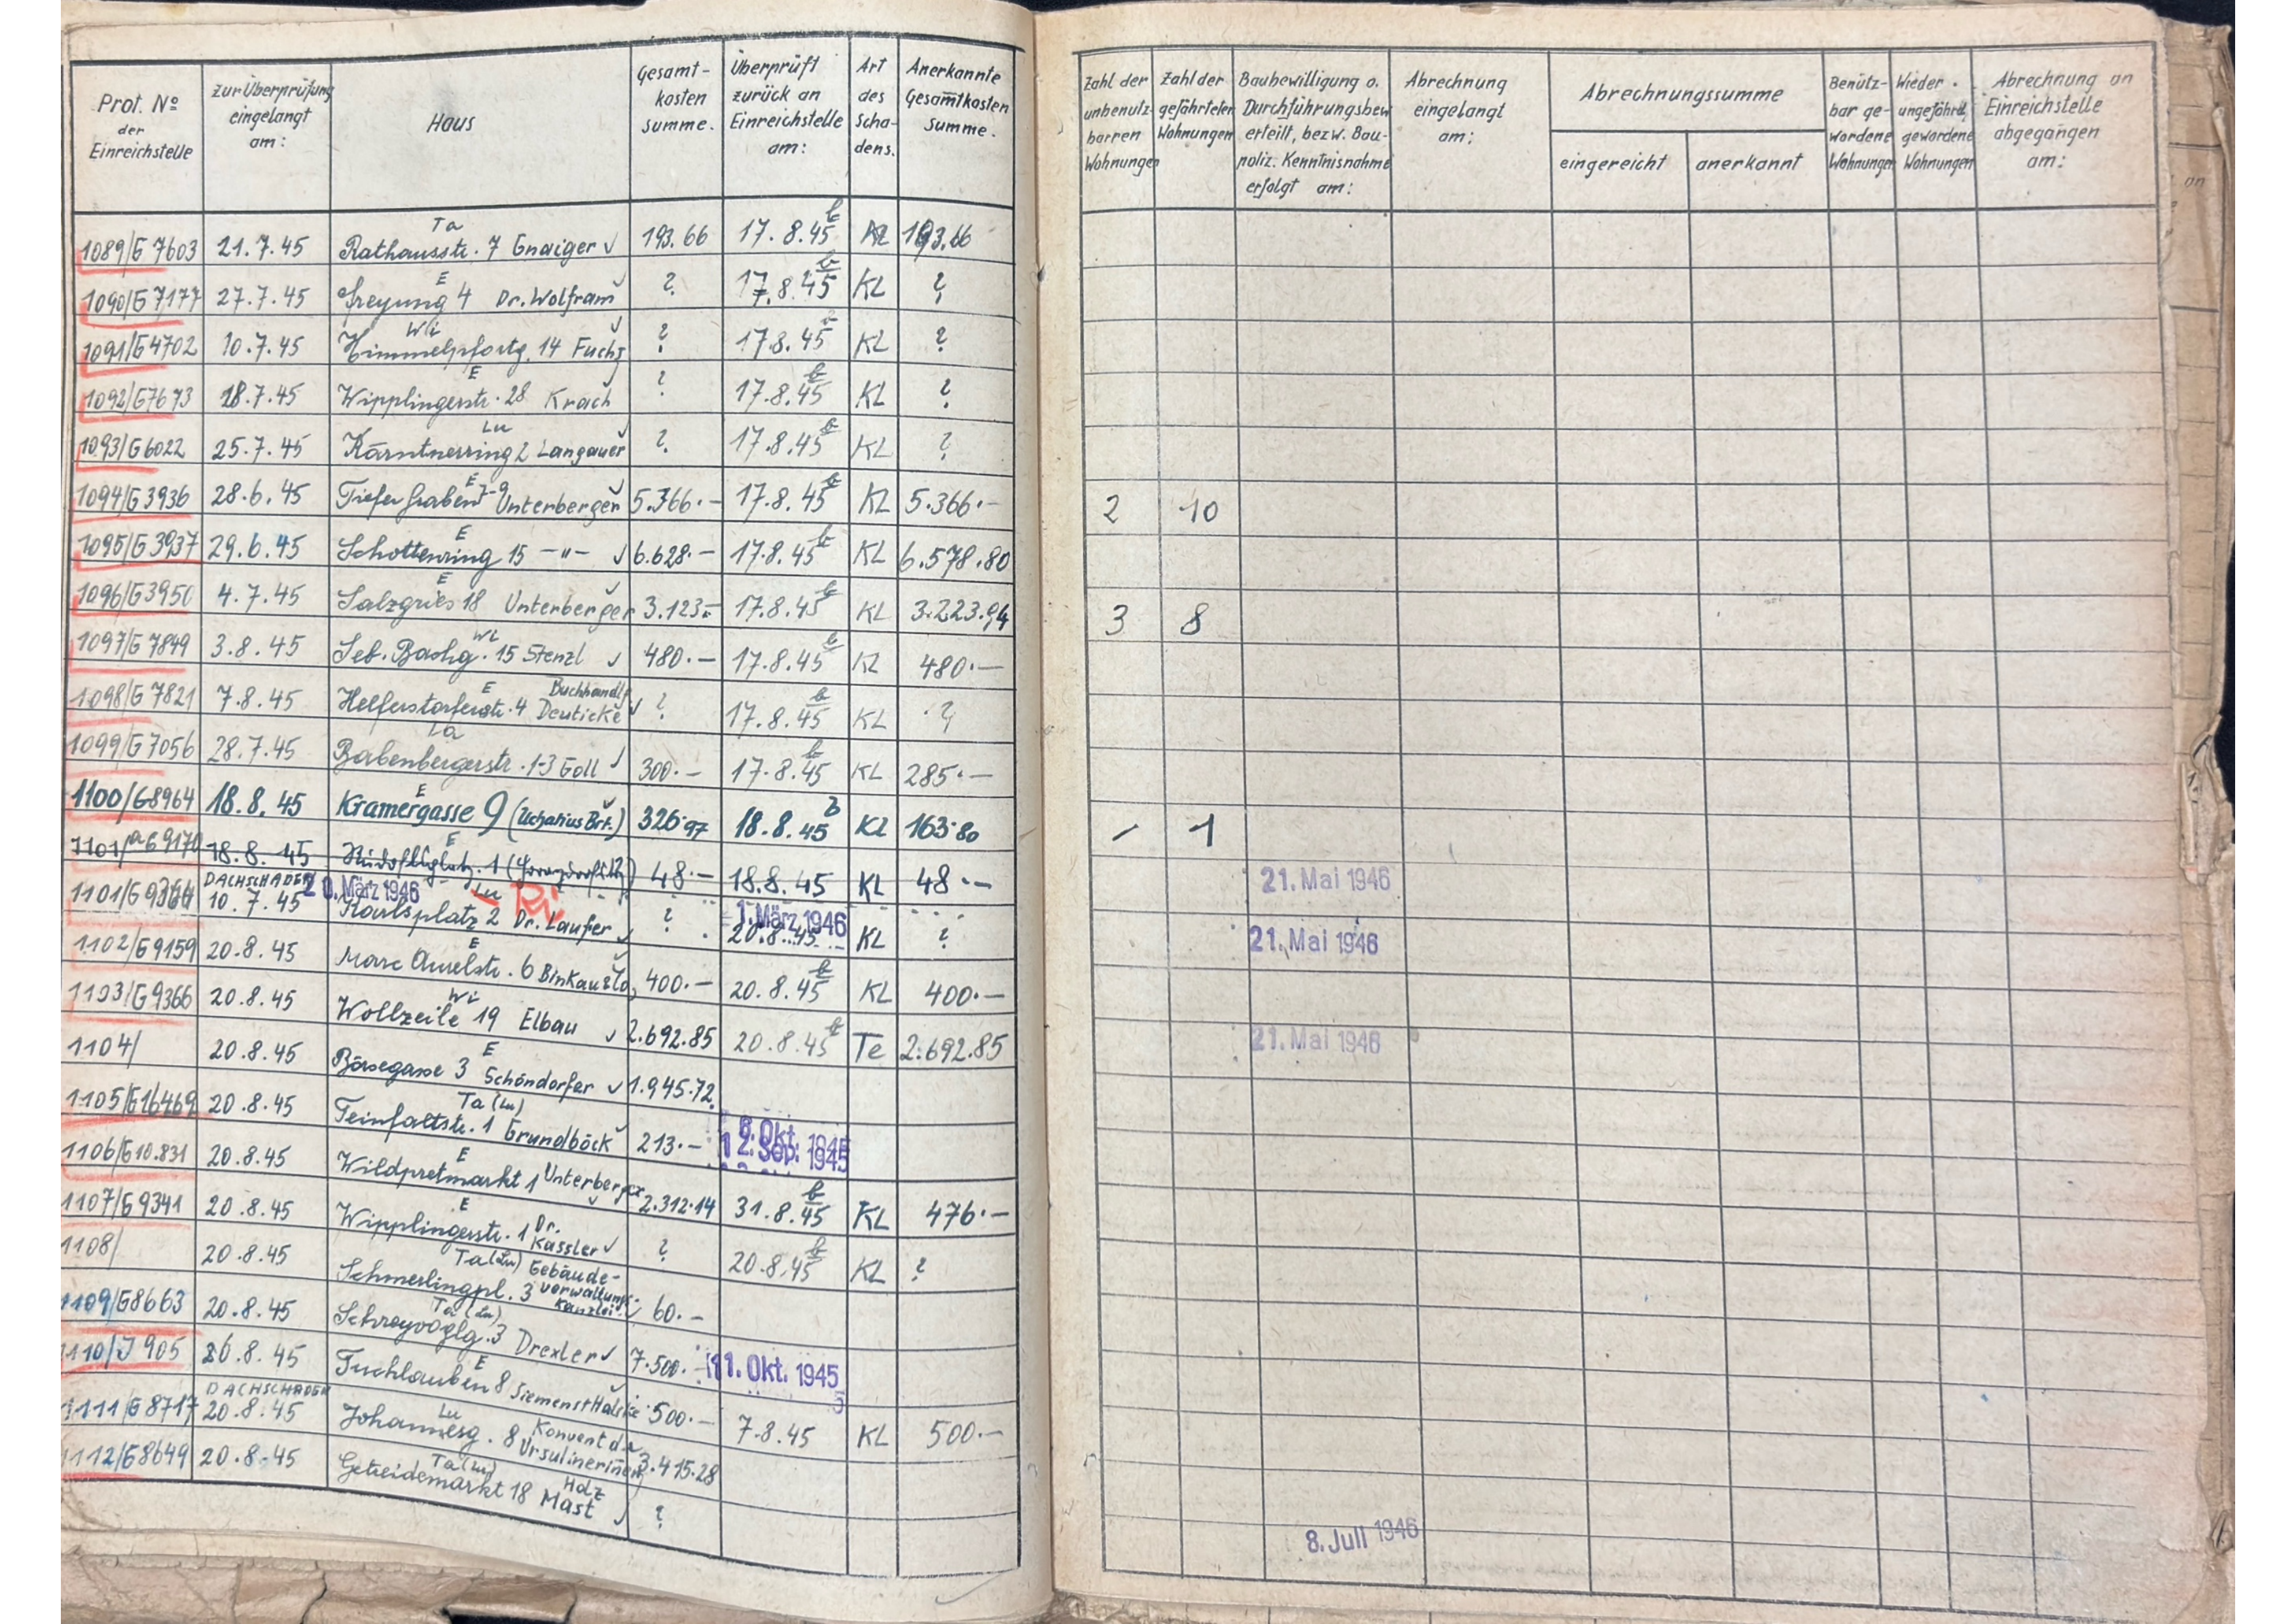 Prot. Nº der Einreichstelle | zur Überprüfung eingelangt am: | Haus | Gesamt-kosten summe. | Überprüft zurück an Einreichstelle am: | Art des Scha-dens. | Anerkannte Gesamtkosten Summe. | Zahl der unbenutz-barren Wohnungen | Zahl der gefährteten Wohnungen | Baubewilligung o. Durchführungsbew. erteilt, bezw. Bau-poliz. Kenntnisnahme erfolgt am: | Abrechnung eingelangt am: | Abrechnungssumme eingereicht | anerkannt | Benütz-bar ge-wordene Wohnungen | Wieder ungefährd. gewordene Wohnungen | Abrechnung an Einreichstelle abgegangen am:
1089/G 7603 21.7.45 Ta Rathausstr. 7 Gnaiger 193.66 17.8.45 KL 193.66
1090/G 7177 27.7.45 E Freyung 4 Dr. Wolfram ? 17.8.45 KL ?
1091/G 4702 10.7.45 Wi Himmelpfortg. 14 Fuchs ? 17.8.45 KL ?
1092/G 7673 18.7.45 E Wipplingerstr. 28 Krach ? 17.8.45 KL ?
1093/G 6022 25.7.45 Lu Kärntnerring 2 Langauer ? 17.8.45 KL ?
1094/G 3936 28.6.45 E Tiefer Graben 7-9 Unterberger 5.366.- 17.8.45 KL 5.366.- 2 10
1095/G 3937 29.6.45 E Schottenring 15 -"- 6.628.- 17.8.45 KL 6.578.80
1096/G 3950 4.7.45 E Salzgries 18 Unterberger 3.123.- 17.8.45 KL 3.223.94 3 8
1097/G 7849 3.8.45 Wi Seb. Bachg. 15 Stenzl 480.- 17.8.45 KL 480.-
1098/G 7821 7.8.45 E Helferstorferstr. 4 Buchhandlg. Deuticke ? 17.8.45 KL ?
1099/G 7056 28.7.45 La Babenbergerstr. 1-3 Goll 300.- 17.8.45 KL 285.-
1100/G 8964 18.8.45 E Kramergasse 9 (Uchatius Brt.) 326.97 18.8.45 KL 163.80 - 1
1101/a G 9170 18.8.45 E Rudolfsplatz. 1 48.- 18.8.45 KL 48.- 21. Mai 1946
1101/G 9364 DACHSCHADEN 10.7.45 20. März 1946 Lu Ri Karlsplatz 2 Dr. Laufer ? 1. März 1946 20.8.45 KL ? 21. Mai 1946
1102/G 9159 20.8.45 E Marc Aurelstr. 6 400.- 20.8.45 KL 400.-
1103/G 9366 20.8.45 Wi Wollzeile 19 Elbau 2.692.85 20.8.45 Te 2.692.85 21. Mai 1946
1104/ 20.8.45 E Börsegasse 3 Schöndorfer 1.945.72
1105/G 16469 20.8.45 Ta (Lu) Teinfaltstr. 1 Grundböck 213.- 6. Okt. 1945 12. Sep. 1945
1106/G 10.831 20.8.45 E Wildpretmarkt 1 Unterberger 2.312.14 31.8.45 KL 476.-
1107/G 9341 20.8.45 E Wipplingerstr. 1 Dr. Kassler ? 20.8.45 KL ?
1108/ 20.8.45 Ta (Lu) Schmerlingpl. 3 Gebäude-verwaltungs-kanzlei 60.-
1109/G 8663 20.8.45 Ta (Lu) Schreyvoglg. 3 Drexler 7.500.- 11. Okt. 1945
1110/J 905 20.8.45 E Tuchlauben 8 Siemens+Halske 500.- 7.8.45 KL 500.-
1111/G 8717 DACHSCHADEN 20.8.45 Lu Johannesg. 8 Konvent d. Ursulinerinnen 3.415.28
1112/G 8649 20.8.45 Ta (Lu) Getreidemarkt 18 Holz Mast ? 8. Juli 1946